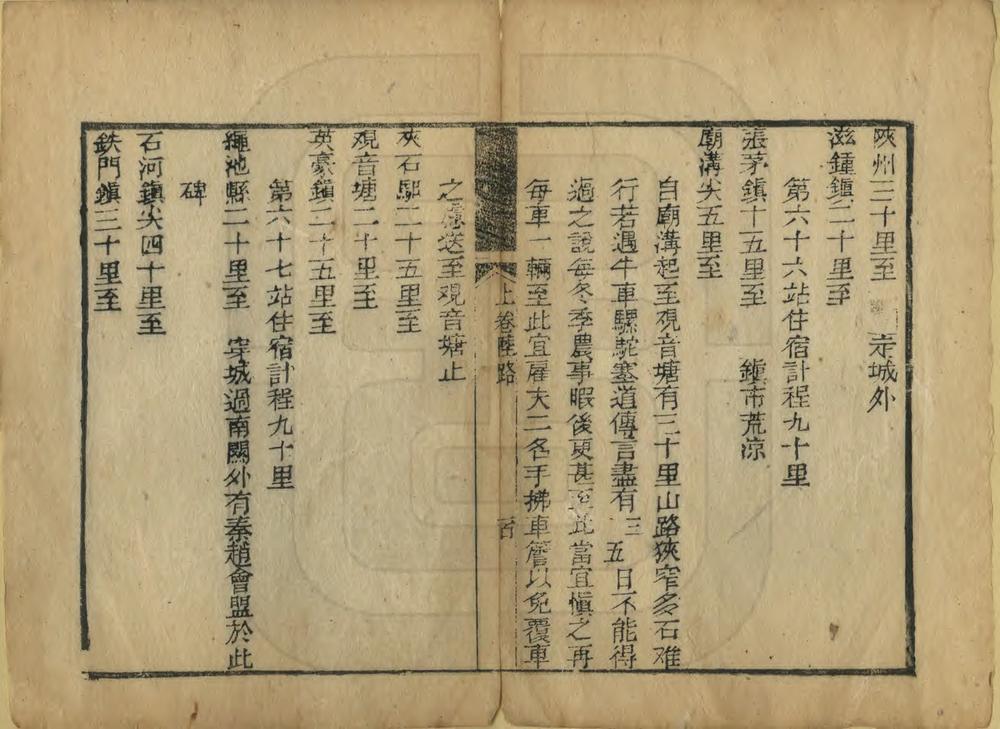 陜州三十里至　示城外
滋鍾鎮二十里至
第六十六站住宿計程九十里
張茅鎮十五里至　鎮市荒凉
廟溝尖五里至
自廟溝起至观音塘有三十里山路狹窄多石难
行若遇牛車騾駝塞道傳言盡有三五日不能得
過之說每冬季農事暇後更甚至此當宜愼之再
每車一輛至此宜雇夫二名手拂車簷以免覆車
上卷陸路　百
之慮送至观音塘止
夾石駅二十五里至
观音塘二十里至
英豪鎮二十五里至
第六十七站住宿計程九十里
繩池縣二十里至　穿城過南關外有秦趙會盟於此
碑
石河鎮尖四十里至
鉄門鎮三十里至